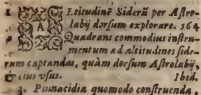 ALtitudinē Siderū per Astro-
labij dorsum explorare. 564
Quadrans commodius instru-
mentum ad altitudines side-
rum captandas, quàm dorsum Astrolabij,
eius vsus. Ibid.
3. Pinnacidia quomodo construenda,